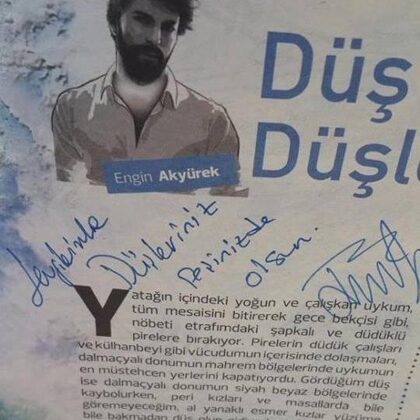 Düş
Engin Akyürek
Düşle
Düşleriniz
peşinizde
olsun.
Yatağın içindeki yoğun ve çalışkan uykum,
tüm mesaisini bitirerek gece bekçisi gibi,
nöbeti etrafımdaki şapkalı ve düdüklü
pirelere bırakıyor. Pirelerin düdük çalışları
ve külhanbeyi gibi vücudumun içerisinde dolaşmaları,
dalmaçyalı donumun mahrem bölgelerinde uykumun
en müstehcen yerlerini kapatıyordu. Gördüğüm düş
ise dalmaçyalı donumun siyah beyaz bölgelerinde
kaybolurken, peri kızları ve masallarda bile
göremeyeceğim, al yanaklı esmer kızlar yüzüme
bile bakmadan